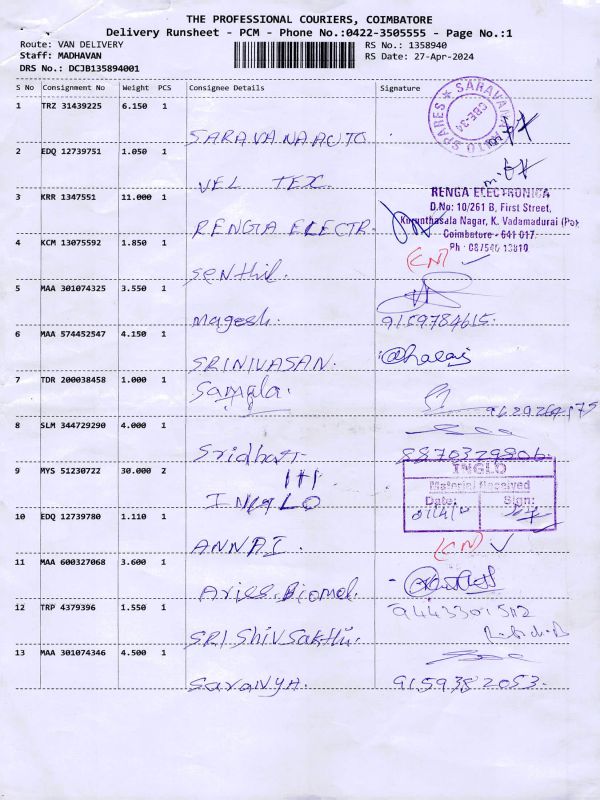 THE PROFESSIONAL COURIERS, COIMBATORE
Delivery Runsheet - PCM - Phone No.:0422-3505555 - Page No.:1
Route: VAN DELIVERY
RS No.: 1358940
Staff: MADHAVAN
RS Date: 27-Apr-2024
DRS No.: DCJB135894001
S No Consignment No Weight PCS Consignee Details Signature
1 TRZ 31439225 6.150 1
SARAVANA AUTO SPARES
CBE-34
SARAVANA AUTO
2 EDQ 12739751 1.050 1
VEL TEX.
3 KRR 1347551 11.000 1
RENGA ELECTRONICA
D.No: 10/261 B, First Street,
Kurunthasala Nagar, K. Vadamadurai (Po)
Coimbatore - 641 017.
RENGA ELECTR.
4 KCM 13075592 1.850 1
(CN)
Senthil.
5 MAA 301074325 3.550 1
Magesh. 9159784615.
6 MAA 574452547 4.150 1
SRINIVASAN.
7 TDR 200038458 1.000 1
8 SLM 344729290 4.000 1
Sridhar. 8870329806.
9 MYS 51230722 30.000 2
INGLO
Material Received
Date: Sign:
INGLO
10 EDQ 12739780 1.110 1
(CN)
ANNAI.
11 MAA 600327068 3.600 1
Aries. Biomed.
12 TRP 4379396 1.550 1
SRI. Shiv Sakthi.
13 MAA 301074346 4.500 1
9159382053.